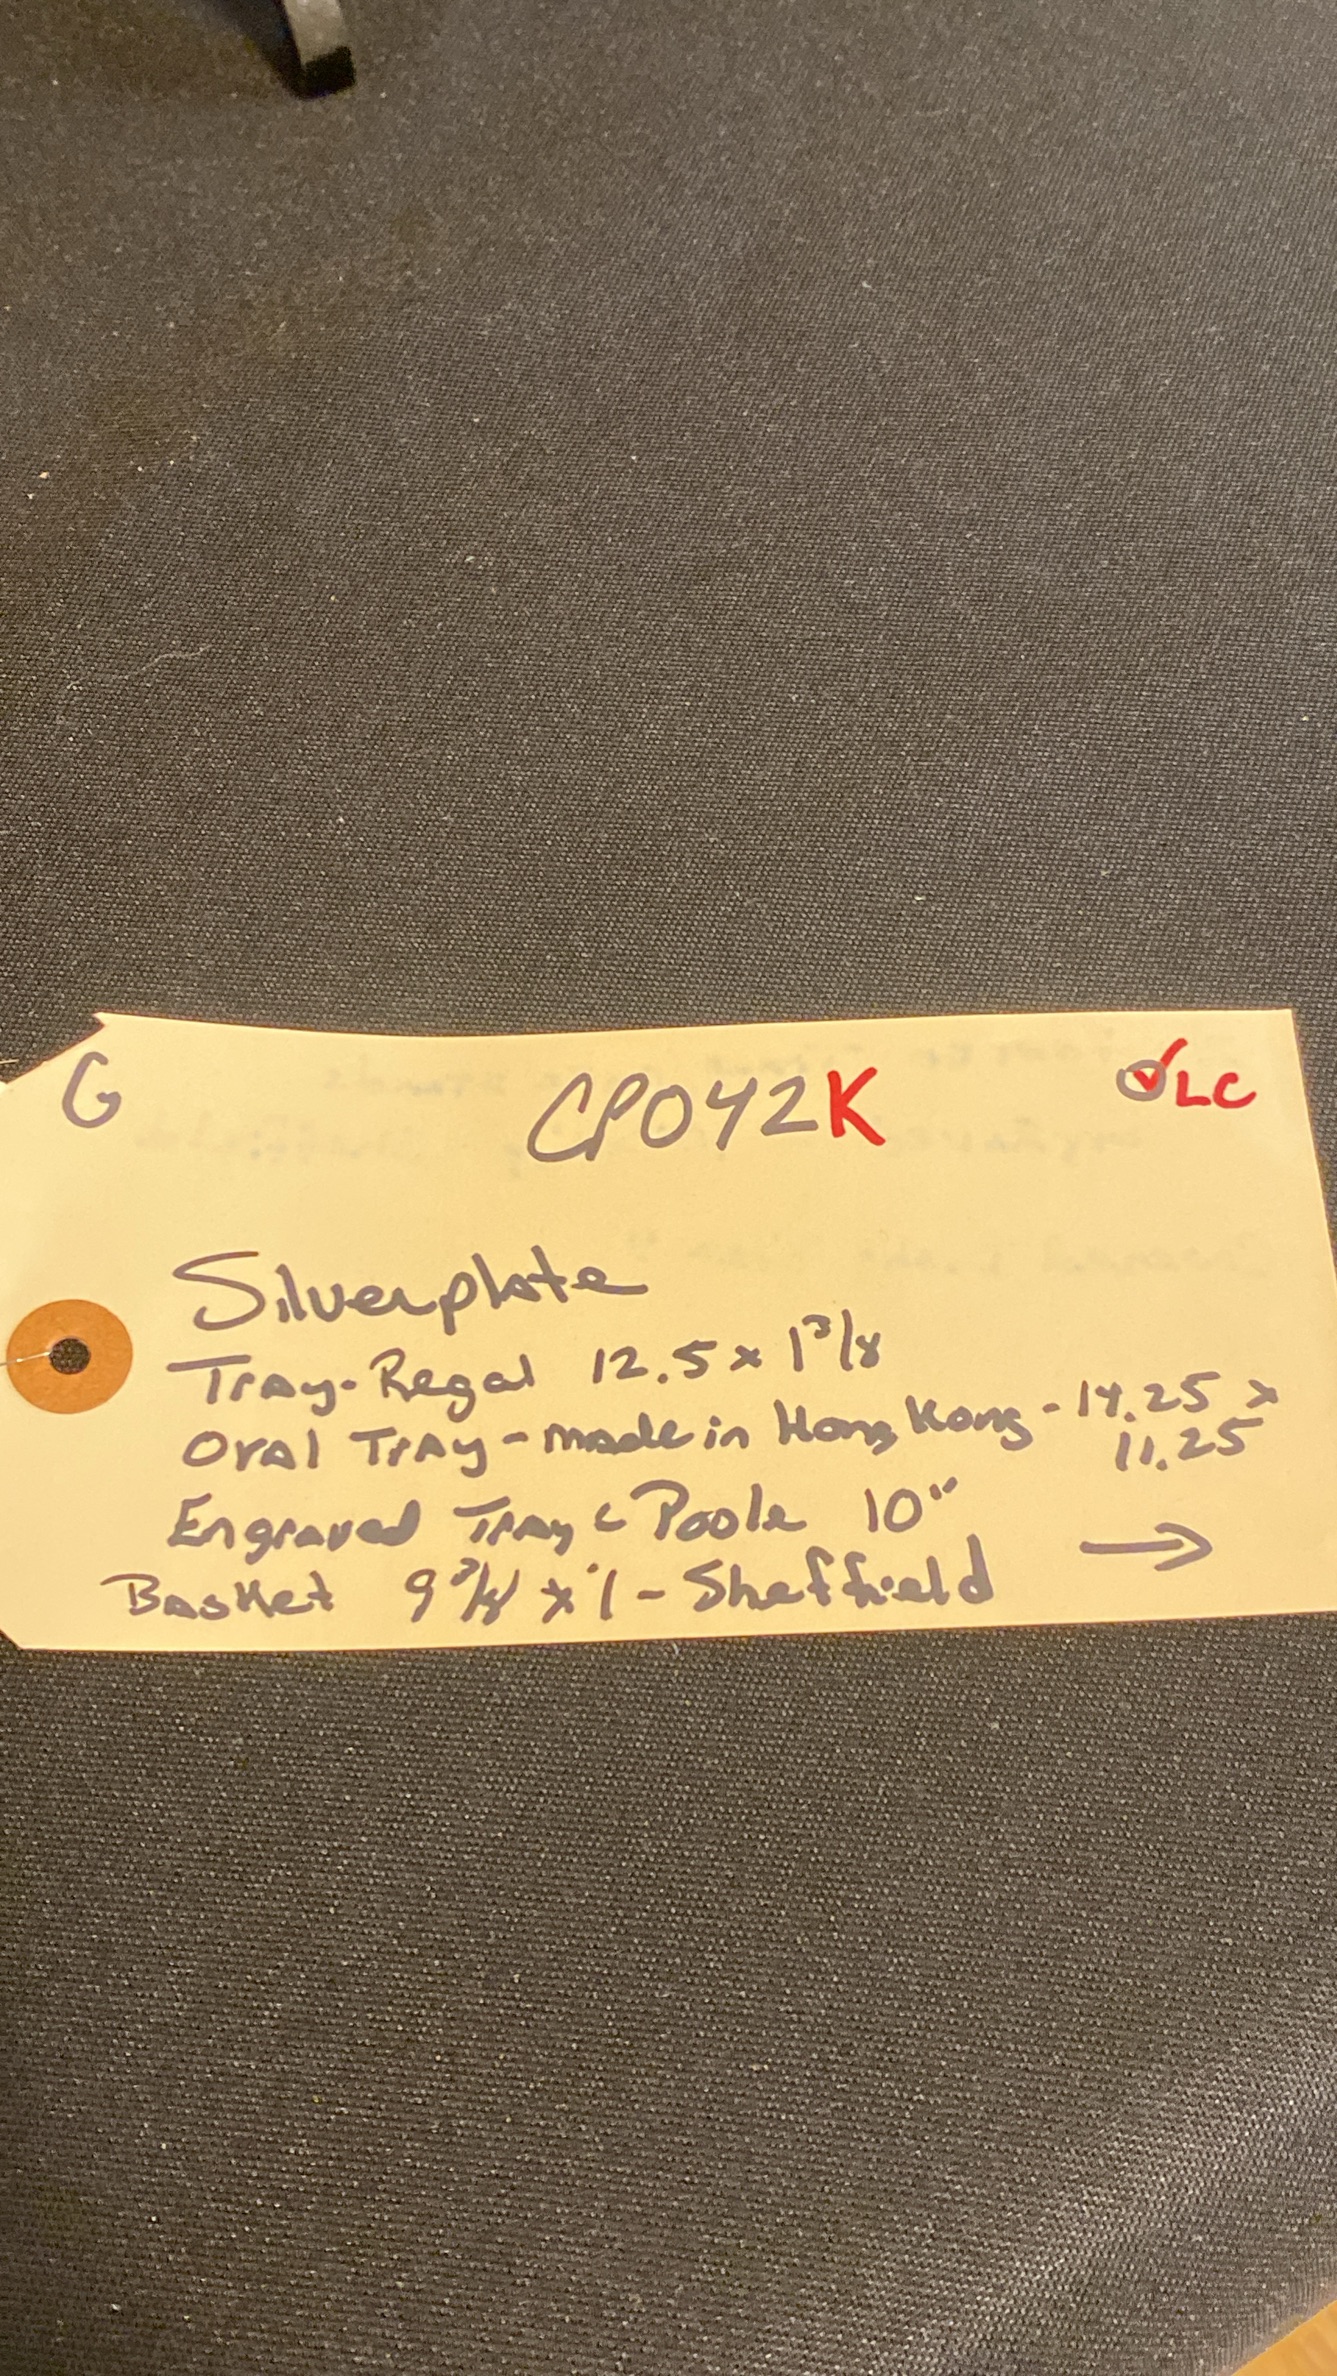 G CPO42K ✓LC
Silverplate
Tray-Regal 12.5 x 1 3/8
Oval Tray-made in Hong Kong - 14.25 x
11.25
Engraved Tray - Poole 10"
Basket 9 3/8 x 1 - Sheffield →